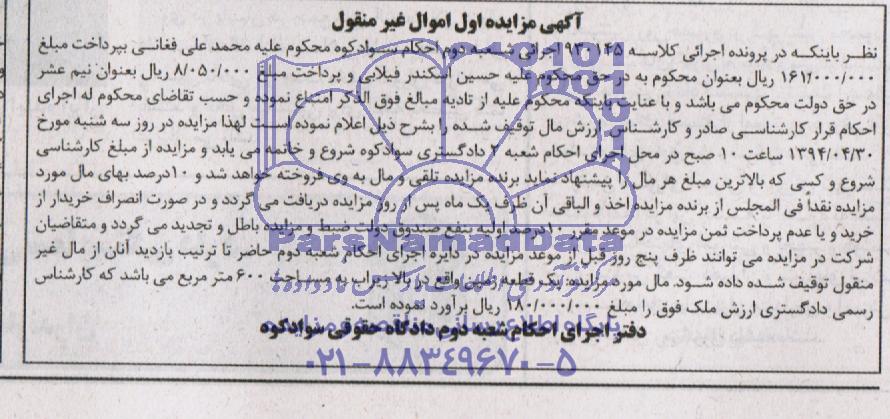 آگهی مزایده اول اموال غیر منقول
نظر باینکه در پرونده اجرائی کلاسه ۹۳۰۱۴۵ اجرائی شعبه دوم احکام سوادکوه محکوم علیه محمد علی فغانی بپرداخت مبلغ
۱۶۱/۰۰۰/۰۰۰ ریال بعنوان محکوم به در حق محکوم علیه حسین اسکندر فیلابی و پرداخت مبلغ ۸/۰۵۰/۰۰۰ ریال بعنوان نیم عشر
در حق دولت محکوم می باشد و با عنایت باینکه محکوم علیه از تادیه مبالغ فوق الذکر امتناع نموده و حسب تقاضای محکوم له اجرای
احکام قرار کارشناسی صادر و کارشناس ارزش مال توقیف شده را بشرح ذیل اعلام نموده است لهذا مزایده در روز سه شنبه مورخ
۱۳۹۴/۰۴/۳۰ ساعت ۱۰ صبح در محل اجرای احکام شعبه ۲ دادگستری سوادکوه شروع و خاتمه می یابد و مزایده از مبلغ کارشناسی
شروع و کسی که بالاترین مبلغ هر مال را پیشنهاد نماید برنده مزایده تلقی و مال به وی فروخته خواهد شد و ۱۰درصد بهای مال مورد
مزایده نقداً فی المجلس از برنده مزایده اخذ و الباقی آن ظرف یک ماه پس از روز مزایده دریافت می گردد و در صورت انصراف خریدار از
خرید و یا عدم پرداخت ثمن مزایده در موعد مقرر ۱۰درصد اولیه بنفع صندوق دولت ضبط و مزایده باطل و تجدید می گردد و متقاضیان
شرکت در مزایده می توانند ظرف پنج روز قبل از موعد مزایده در دایره اجرای احکام شعبه دوم حاضر تا ترتیب بازدید آنان از مال غیر
منقول توقیف شده داده شود. مال مورد مزایده: یک قطعه زمین واقع در بالا زیراب به مساحت ۶۰۰ متر مربع می باشد که کارشناس
رسمی دادگستری ارزش ملک فوق را مبلغ ۱۸۰/۰۰۰/۰۰۰ ریال برآورد نموده است
دفتر اجرای احکام شعبه دوم دادگاه حقوقی سوادکوه
ParsNamadData
پایگاه اطلاع رسانی مناقصه و مزایده
۰۲۱-۸۸۳۴۹۶۷۰-۵